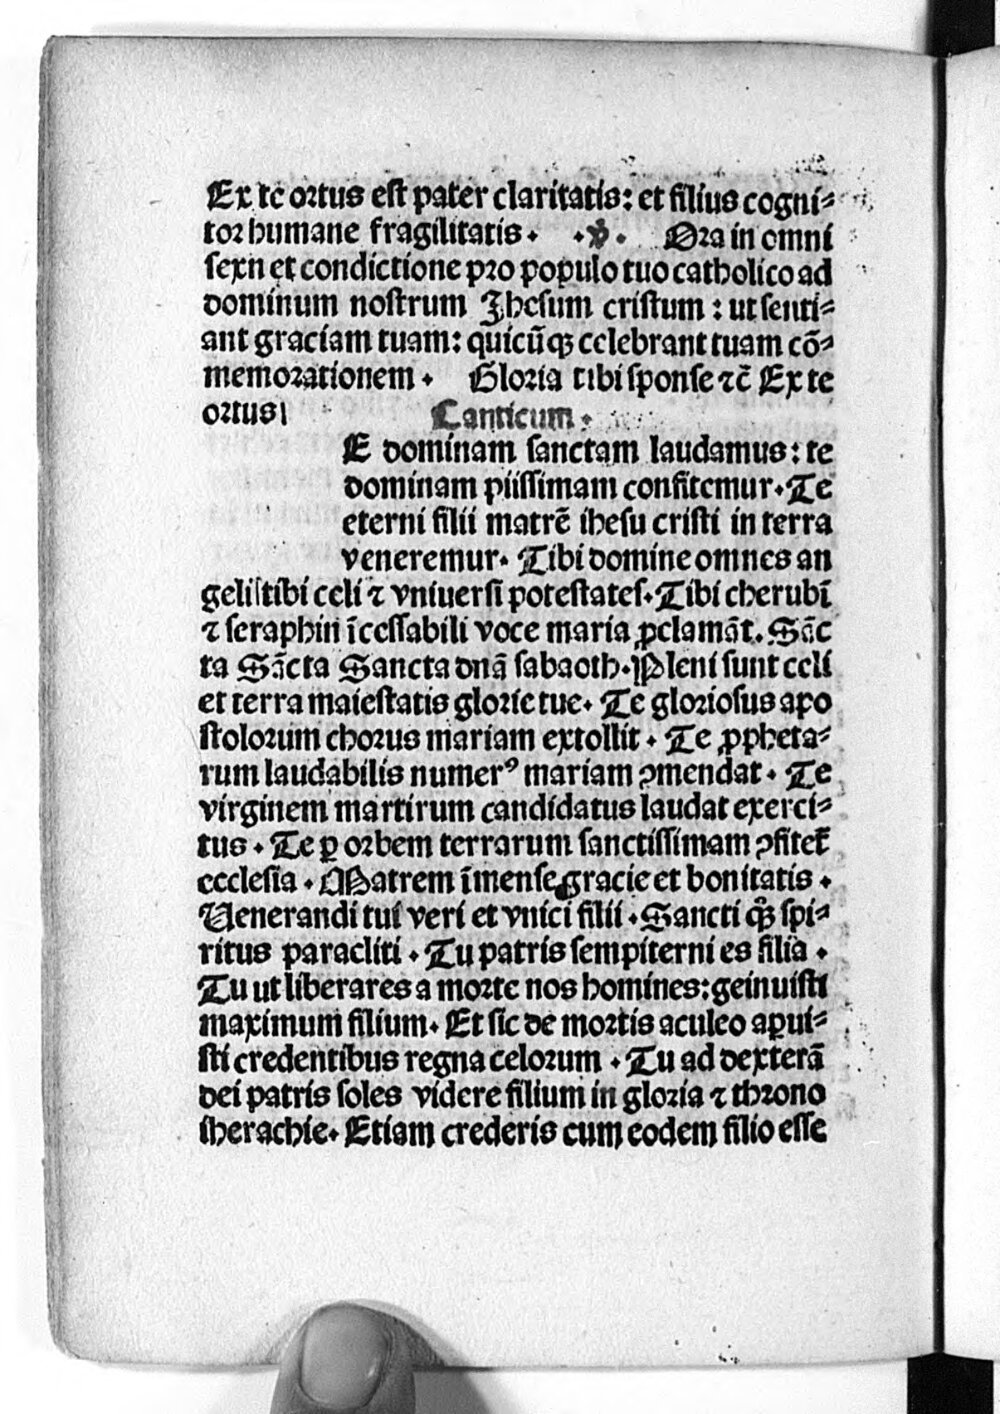 Ex te ortus est pater claritatis: et filius cogni⸗
tor humane fragilitatis. .℣. Ora in omni
sexn et condictione pro populo tuo catholico ad
dominum nostrum Jhesum cristum: ut senti⸗
ant graciam tuam: quicūqꝫ celebrant tuam cō⸗
memorationem. Gloria tibi sponse ⁊c̄ Ex te
ortus
Canticum.
E dominam sanctam laudamus: te
dominam piissimam confitemur. Te
eterni filii matrē ihesu cristi in terra
veneremur. Tibi domine omnes an
geli tibi celi ⁊ vniuersi potestates. Tibi cherubī
⁊ seraphin īcessabili voce maria ꝓclamāt. Sāc
ta Sācta Sancta dnā sabaoth. Pleni sunt celi
et terra maiestatis glorie tue. Te gloriosus apo
stolorum chorus mariam extollit. Te ꝓpheta⸗
rum laudabilis numerꝰ mariam ꝯmendat. Te
virginem martirum candidatus laudat exerci⸗
tus. Te ꝑ orbem terrarum sanctissimam ꝯfitet᷑
ecclesia. Matrem īmense gracie et bonitatis.
Uenerandi tui veri et vnici filii. Sancti qꝫ̄ spi⸗
ritus paracliti. Tu patris sempiterni es filia.
Tu ut liberares a morte nos homines: geinuisti
maximum filium. Et sic de mortis aculeo aꝑui⸗
sti credentibus regna celorum. Tu ad dexterā
dei patris soles videre filium in gloria ⁊ throno
iherachie. Etiam crederis cum eodem filio esse